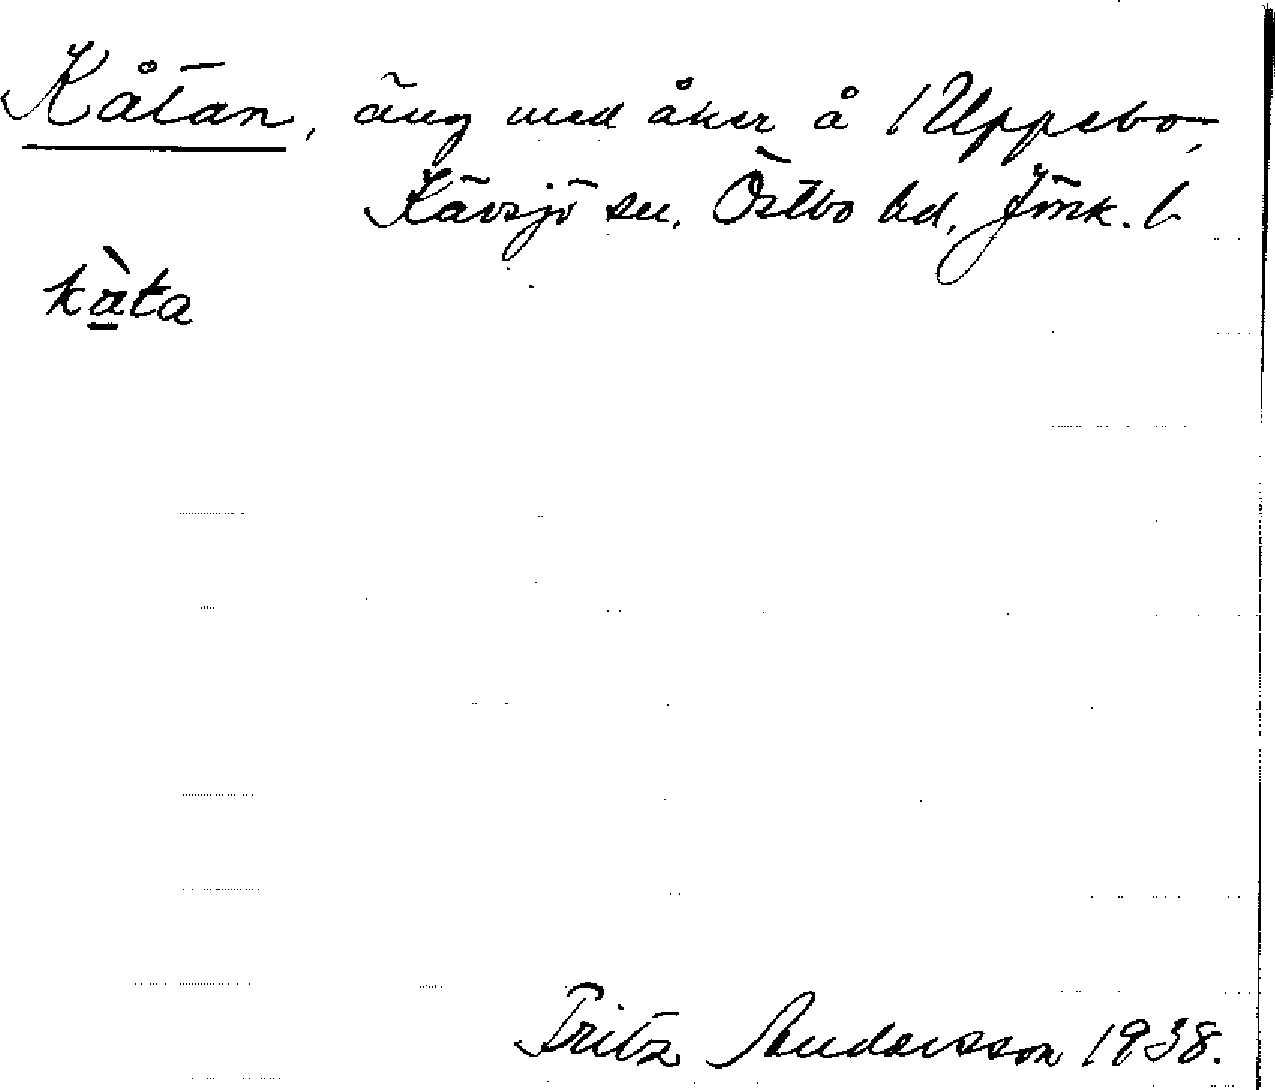 Kåtan, äng med åker å Uppebo,
Kävsjö sn. Östbo hd, Jönk. l
kàta
Fritz Andersson 1938.